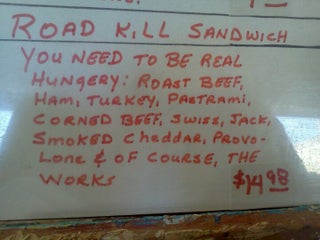 ROAD KILL SANDWICH
YOU NEED TO BE REAL
HUNGERY: ROAST BEEF,
HAM, TURKEY, PASTRAMI,
CORNED BEEF, SWISS, JACK,
SMOKED CHEDDAR, PROVO-
LONE & OF COURSE, THE
WORKS $14.98